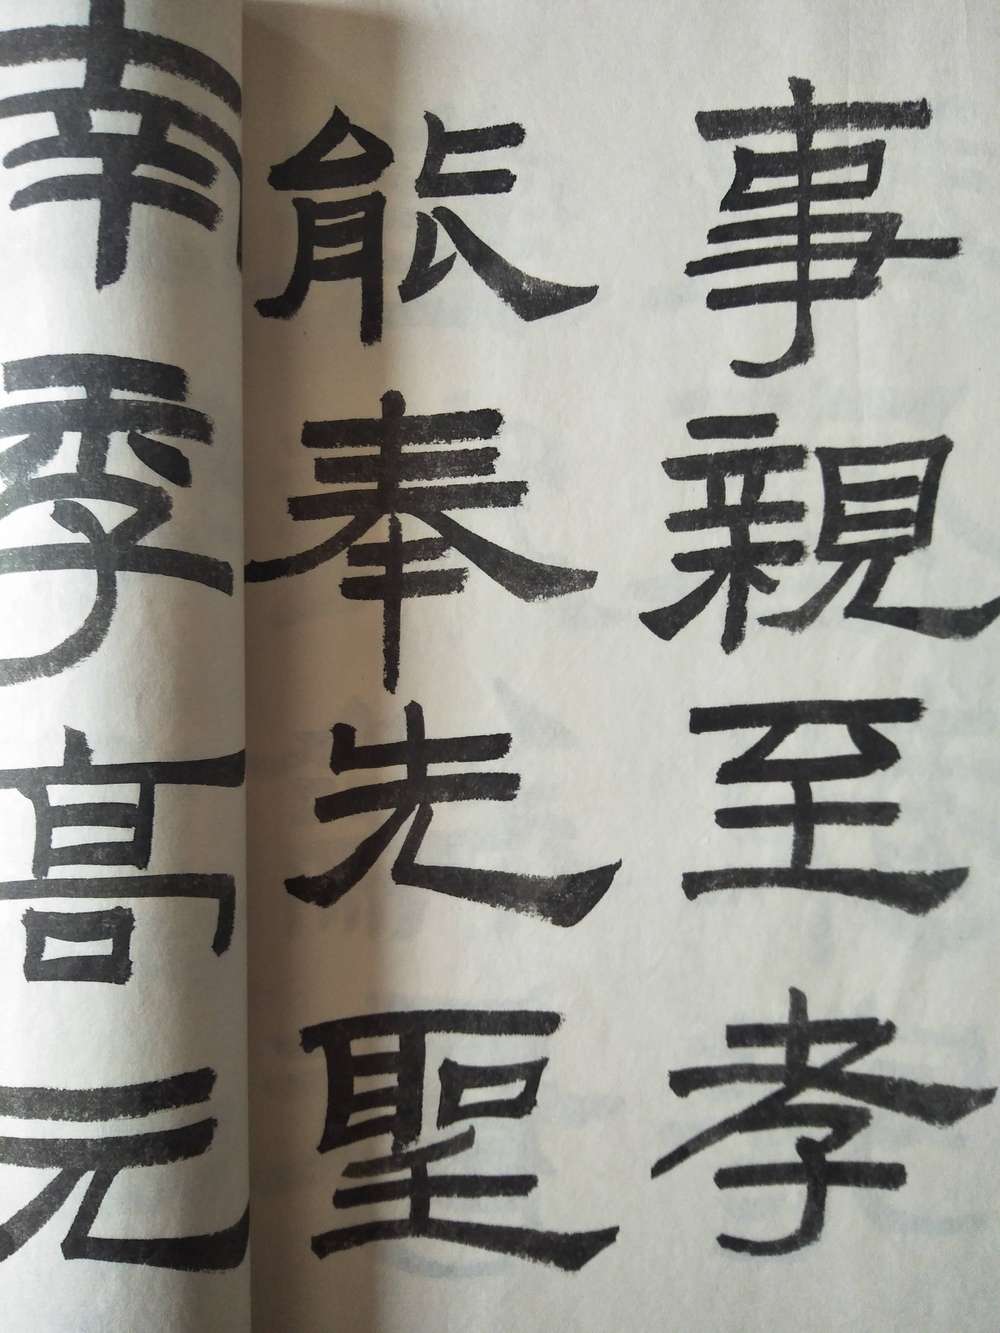 事親至孝
能奉先聖
南季高元